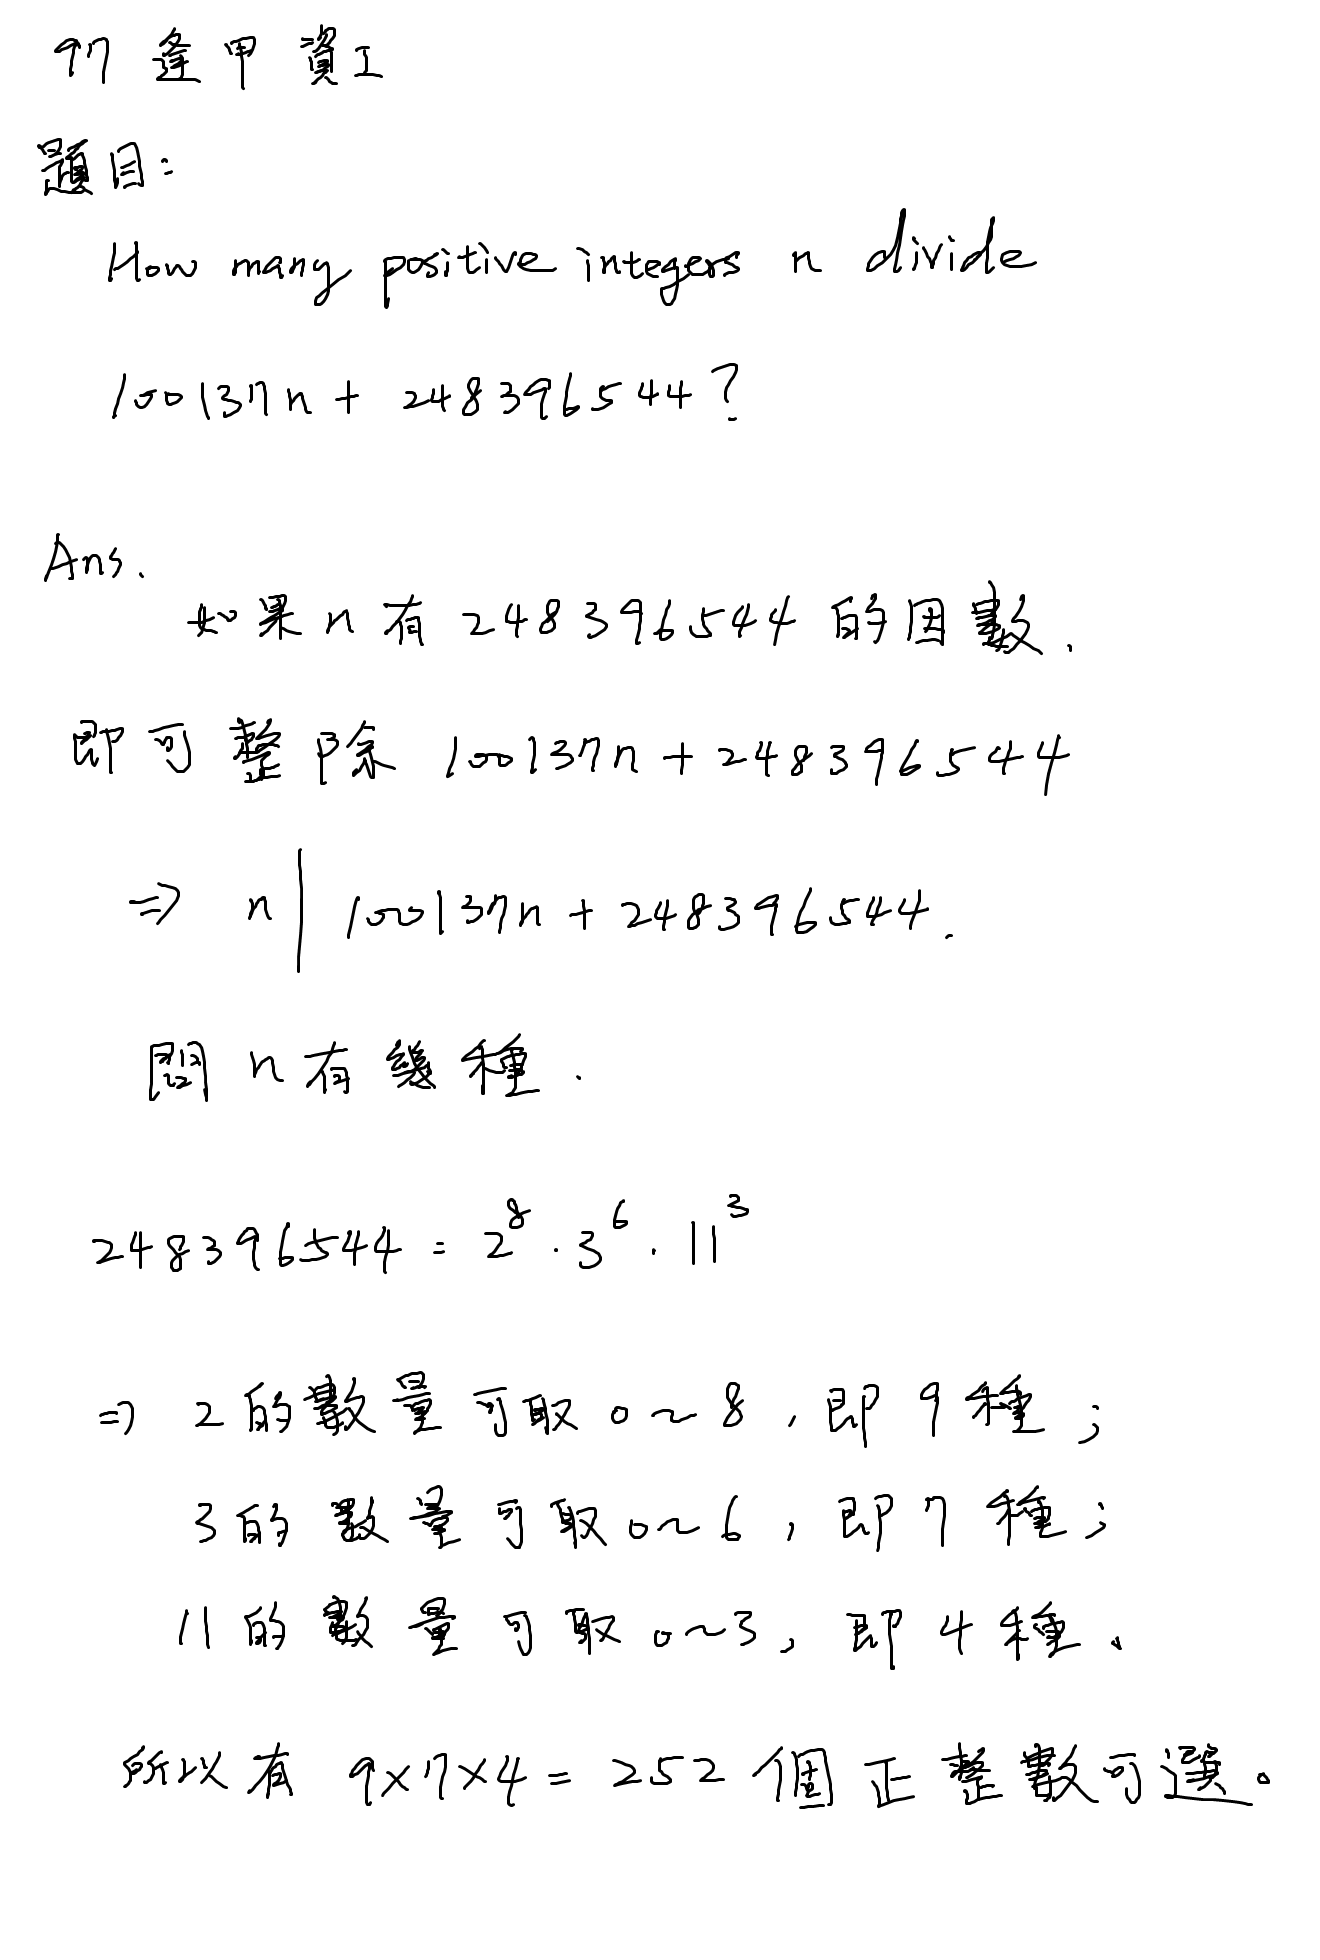 97 逢甲資工
題目:
How many positive integers n divide
100137n + 248396544?
Ans.
如果 n 有 248396544 的因數.
即可整除 100137n + 248396544
⇒ n | 100137n + 248396544.
問 n 有幾種.
248396544 = 2^8 · 3^6 · 11^3
⇒ 2 的數量可取 0~8, 即 9 種;
3 的數量可取 0~6, 即 7 種;
11 的數量可取 0~3, 即 4 種.
所以有 9×7×4 = 252 個正整數可選。